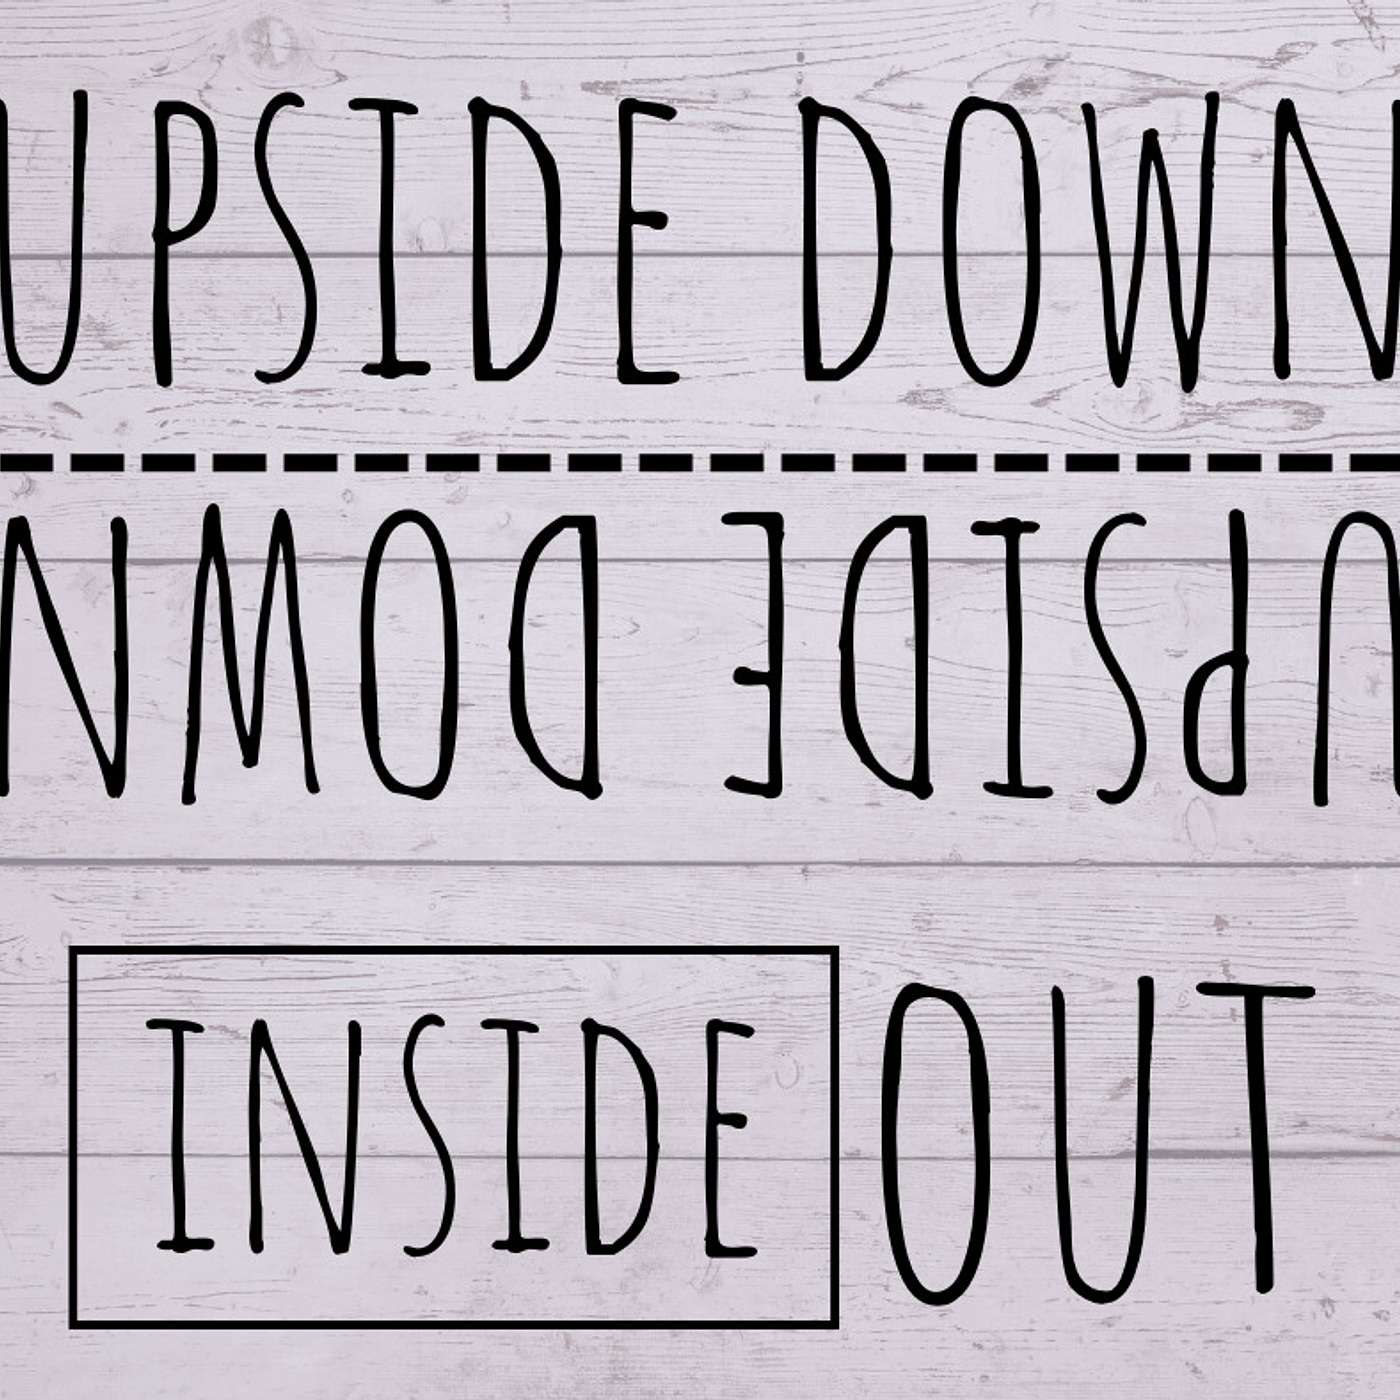 UPSIDE DOWN
UPSIDE DOWN
INSIDE OUT